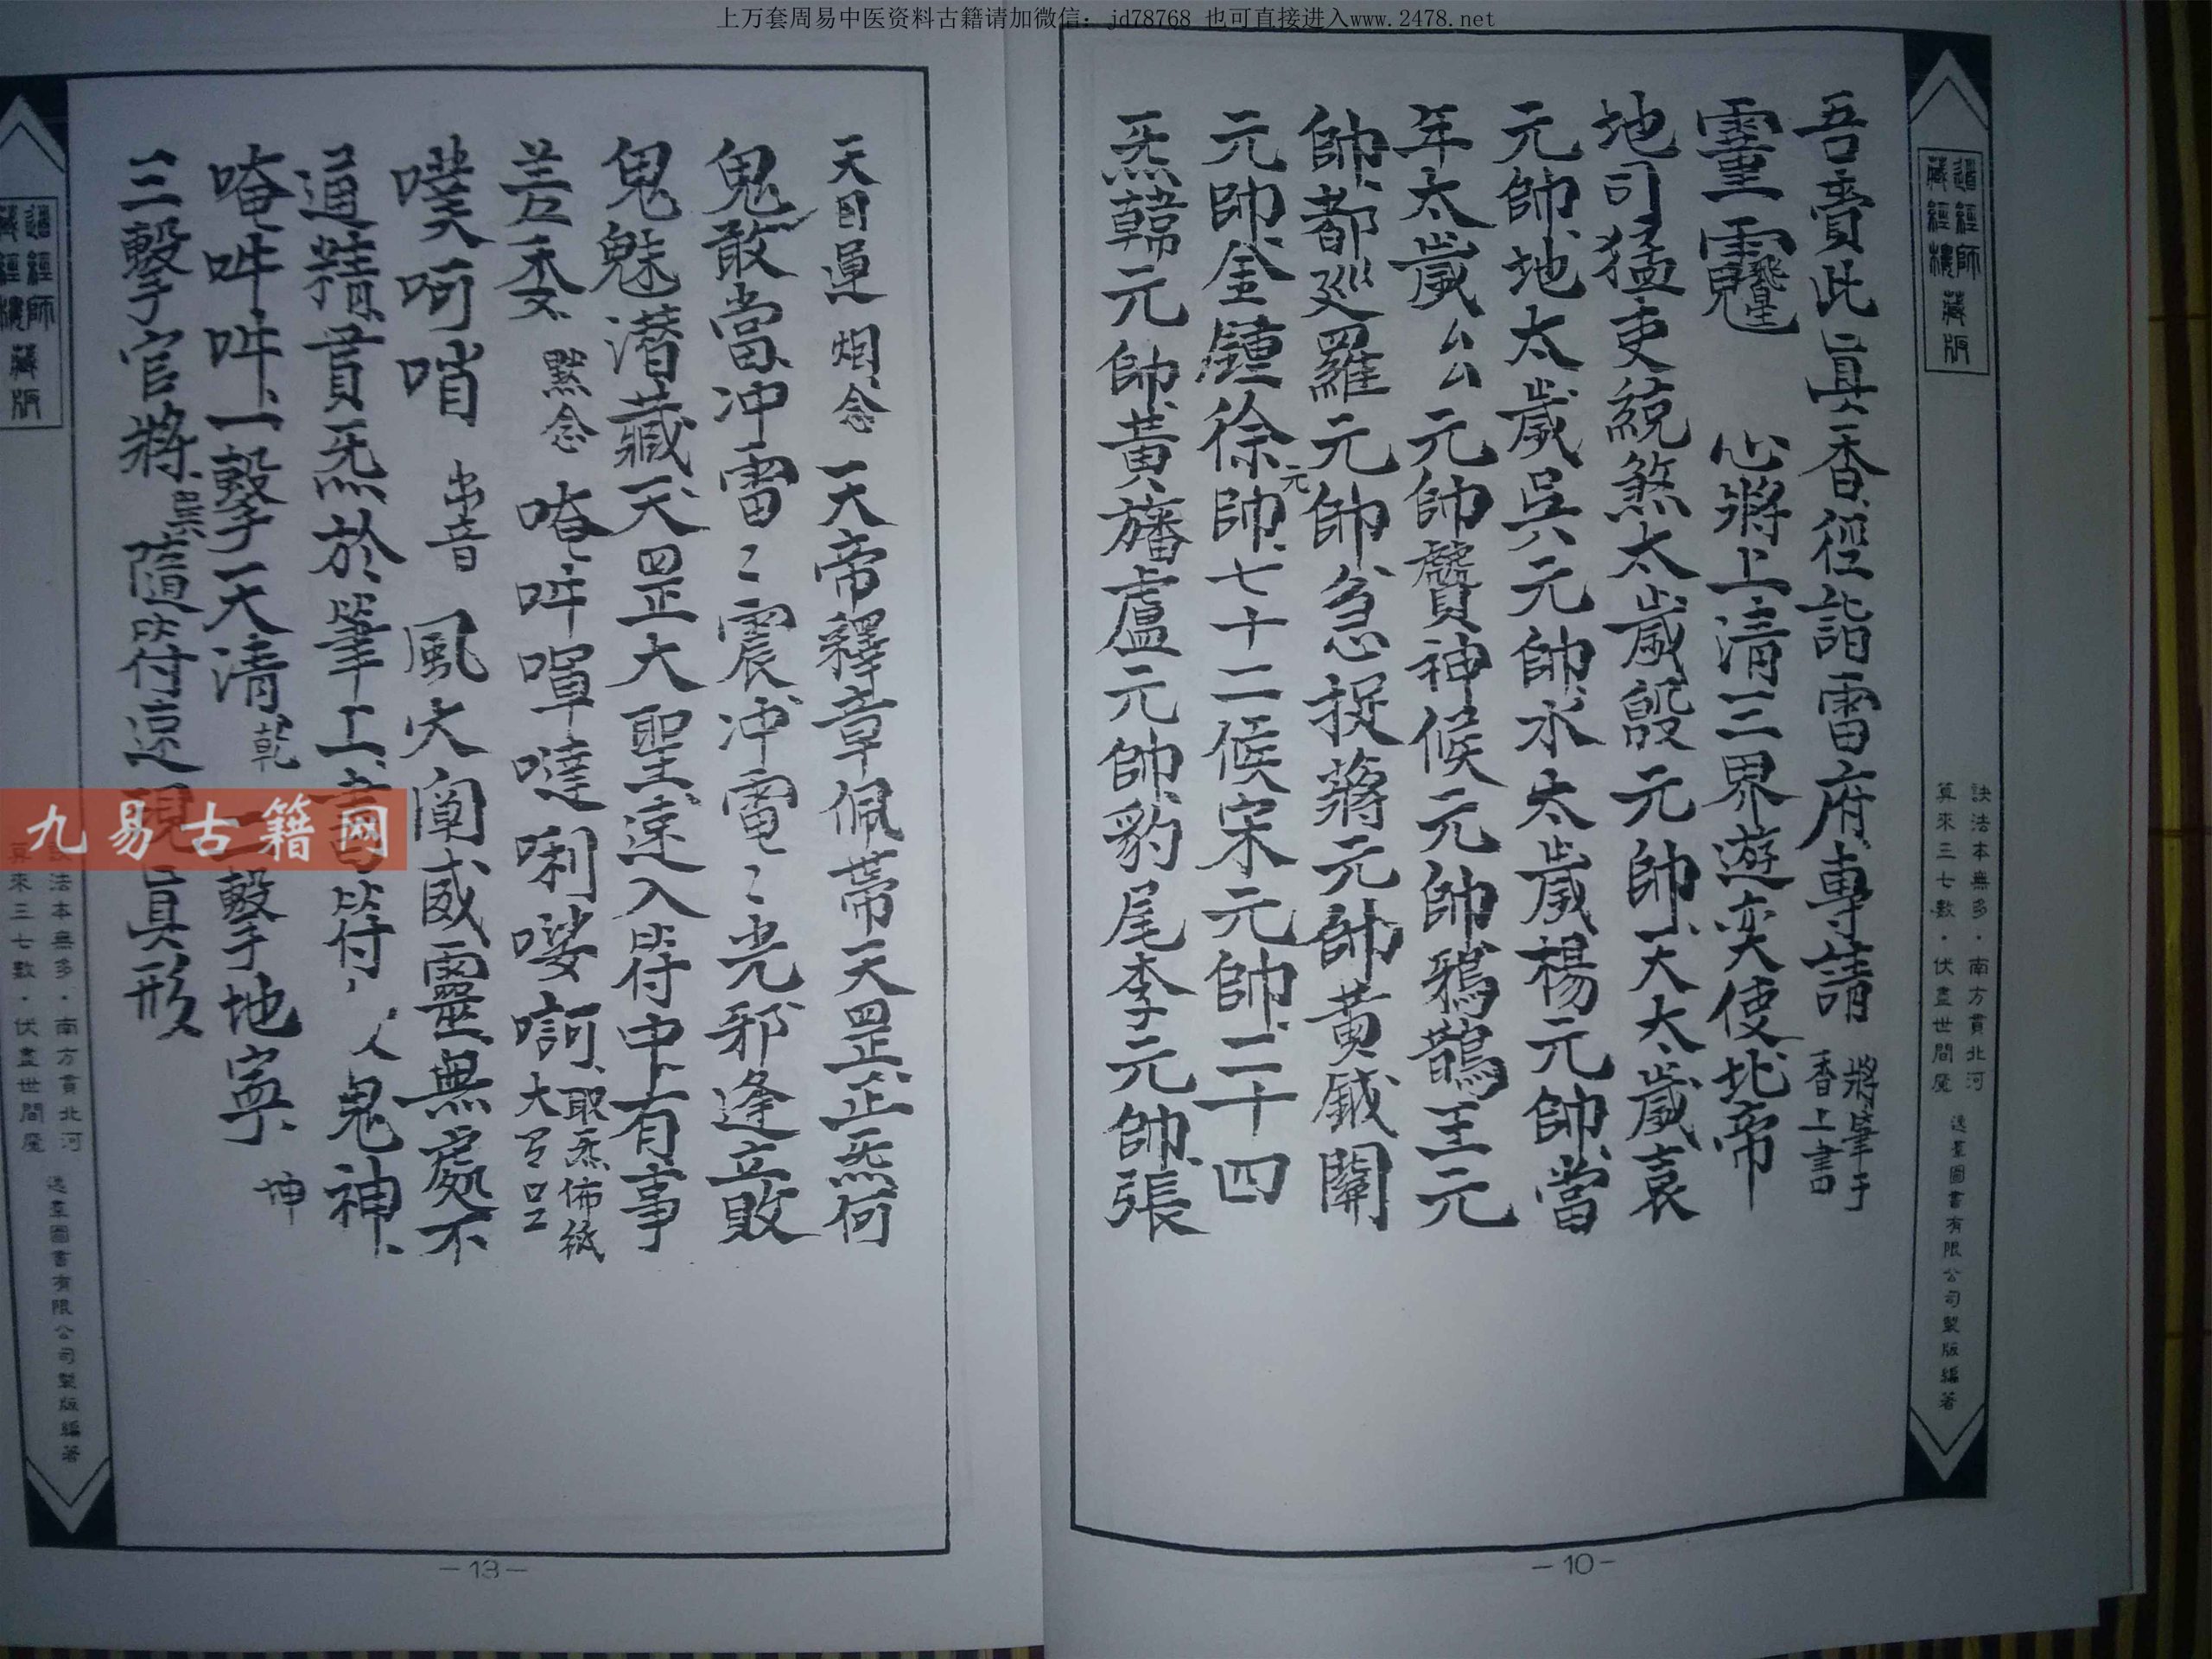 上万套周易中医资料古籍请加微信：jd78768 也可直接进入www.2478.net
道經師
藏經樓
藏版
訣法本無多·南方貫北河
算來三七數·伏盡世間魔
逸羣圖書有限公司製版編著
吾賫此真香徑詣雷府專請 將筆于
香上書
心將上清三界遊奕使北帝
地司猛吏統煞太歲殷元帥天太歲袁
元帥地太歲吳元帥水太歲楊元帥當
年太歲厶厶元帥釁神候元帥鴉鵲王元
帥都廵羅元帥急捉蔣元帥黃鉞關
元帥金鍾徐元帥七十二候宋元帥二十四
炁韓元帥黃旛盧元帥豹尾李元帥張
-10-
天目運 烟念 天帝釋章佩蒂天罡正炁何
鬼敢當冲雷ミ震冲電ミ光邪逢立敗
鬼魅潛藏天罡大聖速入符中有事
差委 默念 唵吽㖷噠唎嘙 取炁佈紙
大
噗呵哨 音 風火 威靈無處不
通精貫炁於筆上書符 人鬼神
唵吽吽一擊天清 乾 二擊地寧 坤
三擊官將 巽 隨符速現真形
九易古籍网
道經師
藏經樓
藏版
訣法本無多·南方貫北河
算來三七數·伏盡世間魔
逸羣圖書有限公司製版編著
-13-